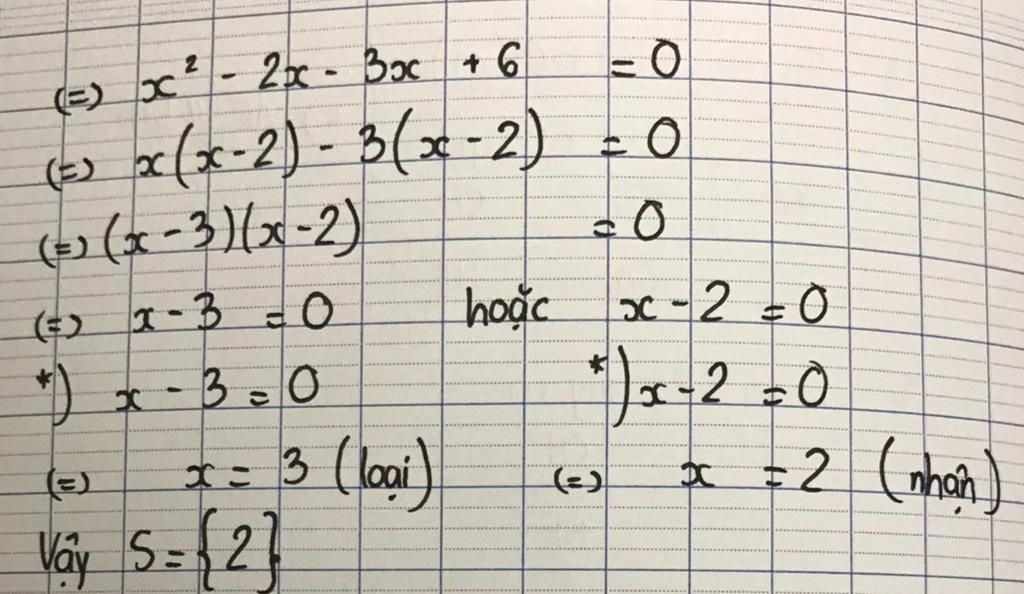 (=) x² - 2x - 3x + 6 = 0
(=) x(x-2) - 3(x-2) = 0
(=) (x-3)(x-2) = 0
(=) x-3 = 0 hoặc x-2 = 0
*) x - 3 = 0 *) x-2 = 0
(=) x = 3 (loại) (=) x = 2 (nhận)
Vậy S = {2}